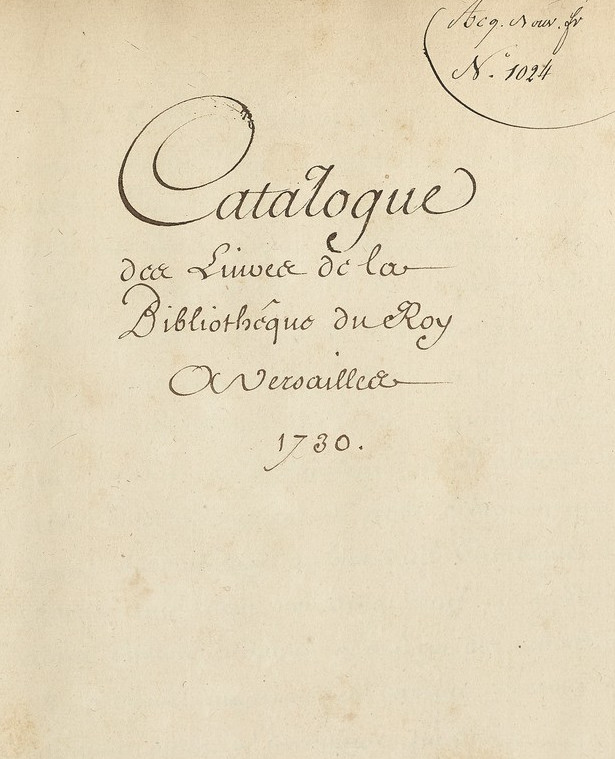 Acq. Nouv. fr
N.° 1024
Catalogue
des Livres de la
Bibliothêque du Roy
A Versailles
1730.